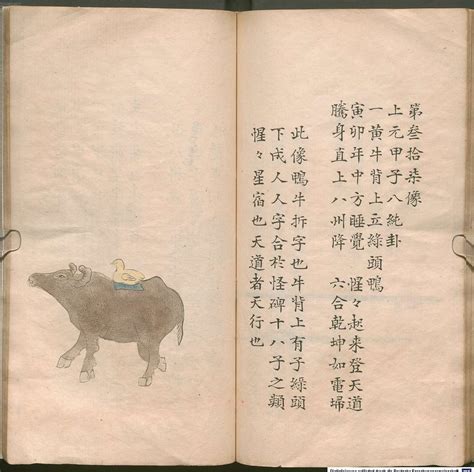 第叄拾柒像
上元甲子八純卦
一黃牛背上立綠頭鴨
寅卯年中方睡覺 惺々起來登天道
騰身直上八州降 六合乾坤如電埽
此像鴨牛拆字也牛背上有子綠頭
下成人人字合於怪碑十八子之類
惺々星宿也天道者天行也